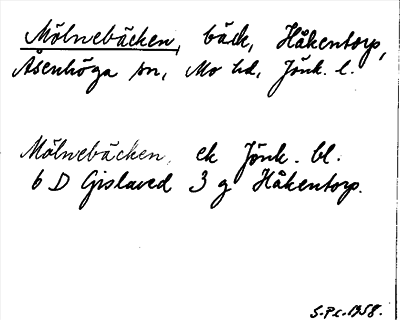 Mölnebäcken, bäck, Håkentorp,
Åsenhöga sn, Mo hd, Jönk. l.
Mölnebäcken, ek Jönk. bl.
6 D Gislaved 3 g Håkentorp.
S.Pl. 1958.